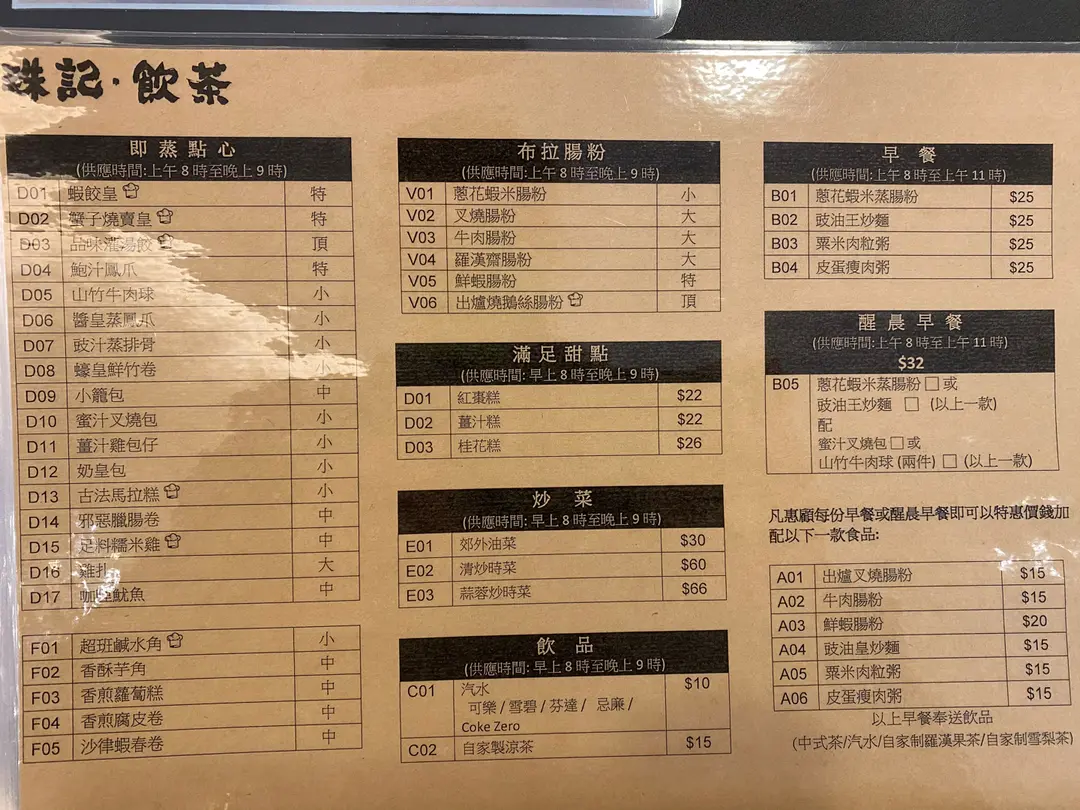 珠記·飲茶
即蒸點心
(供應時間:上午8時至晚上9時)
D01 蝦餃皇 特
D02 蟹子燒賣皇 特
D03 品味灌湯餃 頂
D04 鮑汁鳳爪 特
D05 山竹牛肉球 小
D06 醬皇蒸鳳爪 小
D07 豉汁蒸排骨 小
D08 蠔皇鮮竹卷 小
D09 小籠包 中
D10 蜜汁叉燒包 小
D11 薑汁雞包仔 小
D12 奶皇包 小
D13 古法馬拉糕 小
D14 邪惡臘腸卷 中
D15 足料糯米雞 中
D16 雞扎 大
D17 咖喱魷魚 中
F01 超班鹹水角 小
F02 香酥芋角 中
F03 香煎蘿蔔糕 中
F04 香煎腐皮卷 中
F05 沙律蝦春卷 中
布拉腸粉
(供應時間:上午8時至晚上9時)
V01 蔥花蝦米腸粉 小
V02 叉燒腸粉 大
V03 牛肉腸粉 大
V04 羅漢齋腸粉 大
V05 鮮蝦腸粉 特
V06 出爐燒鵝絲腸粉 頂
滿足甜點
(供應時間: 早上8時至晚上9時)
D01 紅棗糕 $22
D02 薑汁糕 $22
D03 桂花糕 $26
炒菜
(供應時間: 早上8時至晚上9時)
E01 郊外油菜 $30
E02 清炒時菜 $60
E03 蒜蓉炒時菜 $66
飲品
(供應時間: 早上8時至晚上9時)
C01 汽水 $10
可樂/雪碧/芬達/ 忌廉/
Coke Zero
C02 自家製涼茶 $15
早餐
(供應時間:上午8時至上午11時)
B01 蔥花蝦米蒸腸粉 $25
B02 豉油王炒麵 $25
B03 粟米肉粒粥 $25
B04 皮蛋瘦肉粥 $25
醒晨早餐
(供應時間:上午8時至上午11時)
$32
B05 蔥花蝦米蒸腸粉□或
豉油王炒麵 □ (以上一款)
配
蜜汁叉燒包□或
山竹牛肉球(兩件) □ (以上一款)
凡惠顧每份早餐或醒晨早餐即可以特惠價錢加
配以下一款食品:
A01 出爐叉燒腸粉 $15
A02 牛肉腸粉 $15
A03 鮮蝦腸粉 $20
A04 豉油皇炒麵 $15
A05 粟米肉粒粥 $15
A06 皮蛋瘦肉粥 $15
以上早餐奉送飲品
(中式茶/汽水/自家制羅漢果茶/自家制雪梨茶)